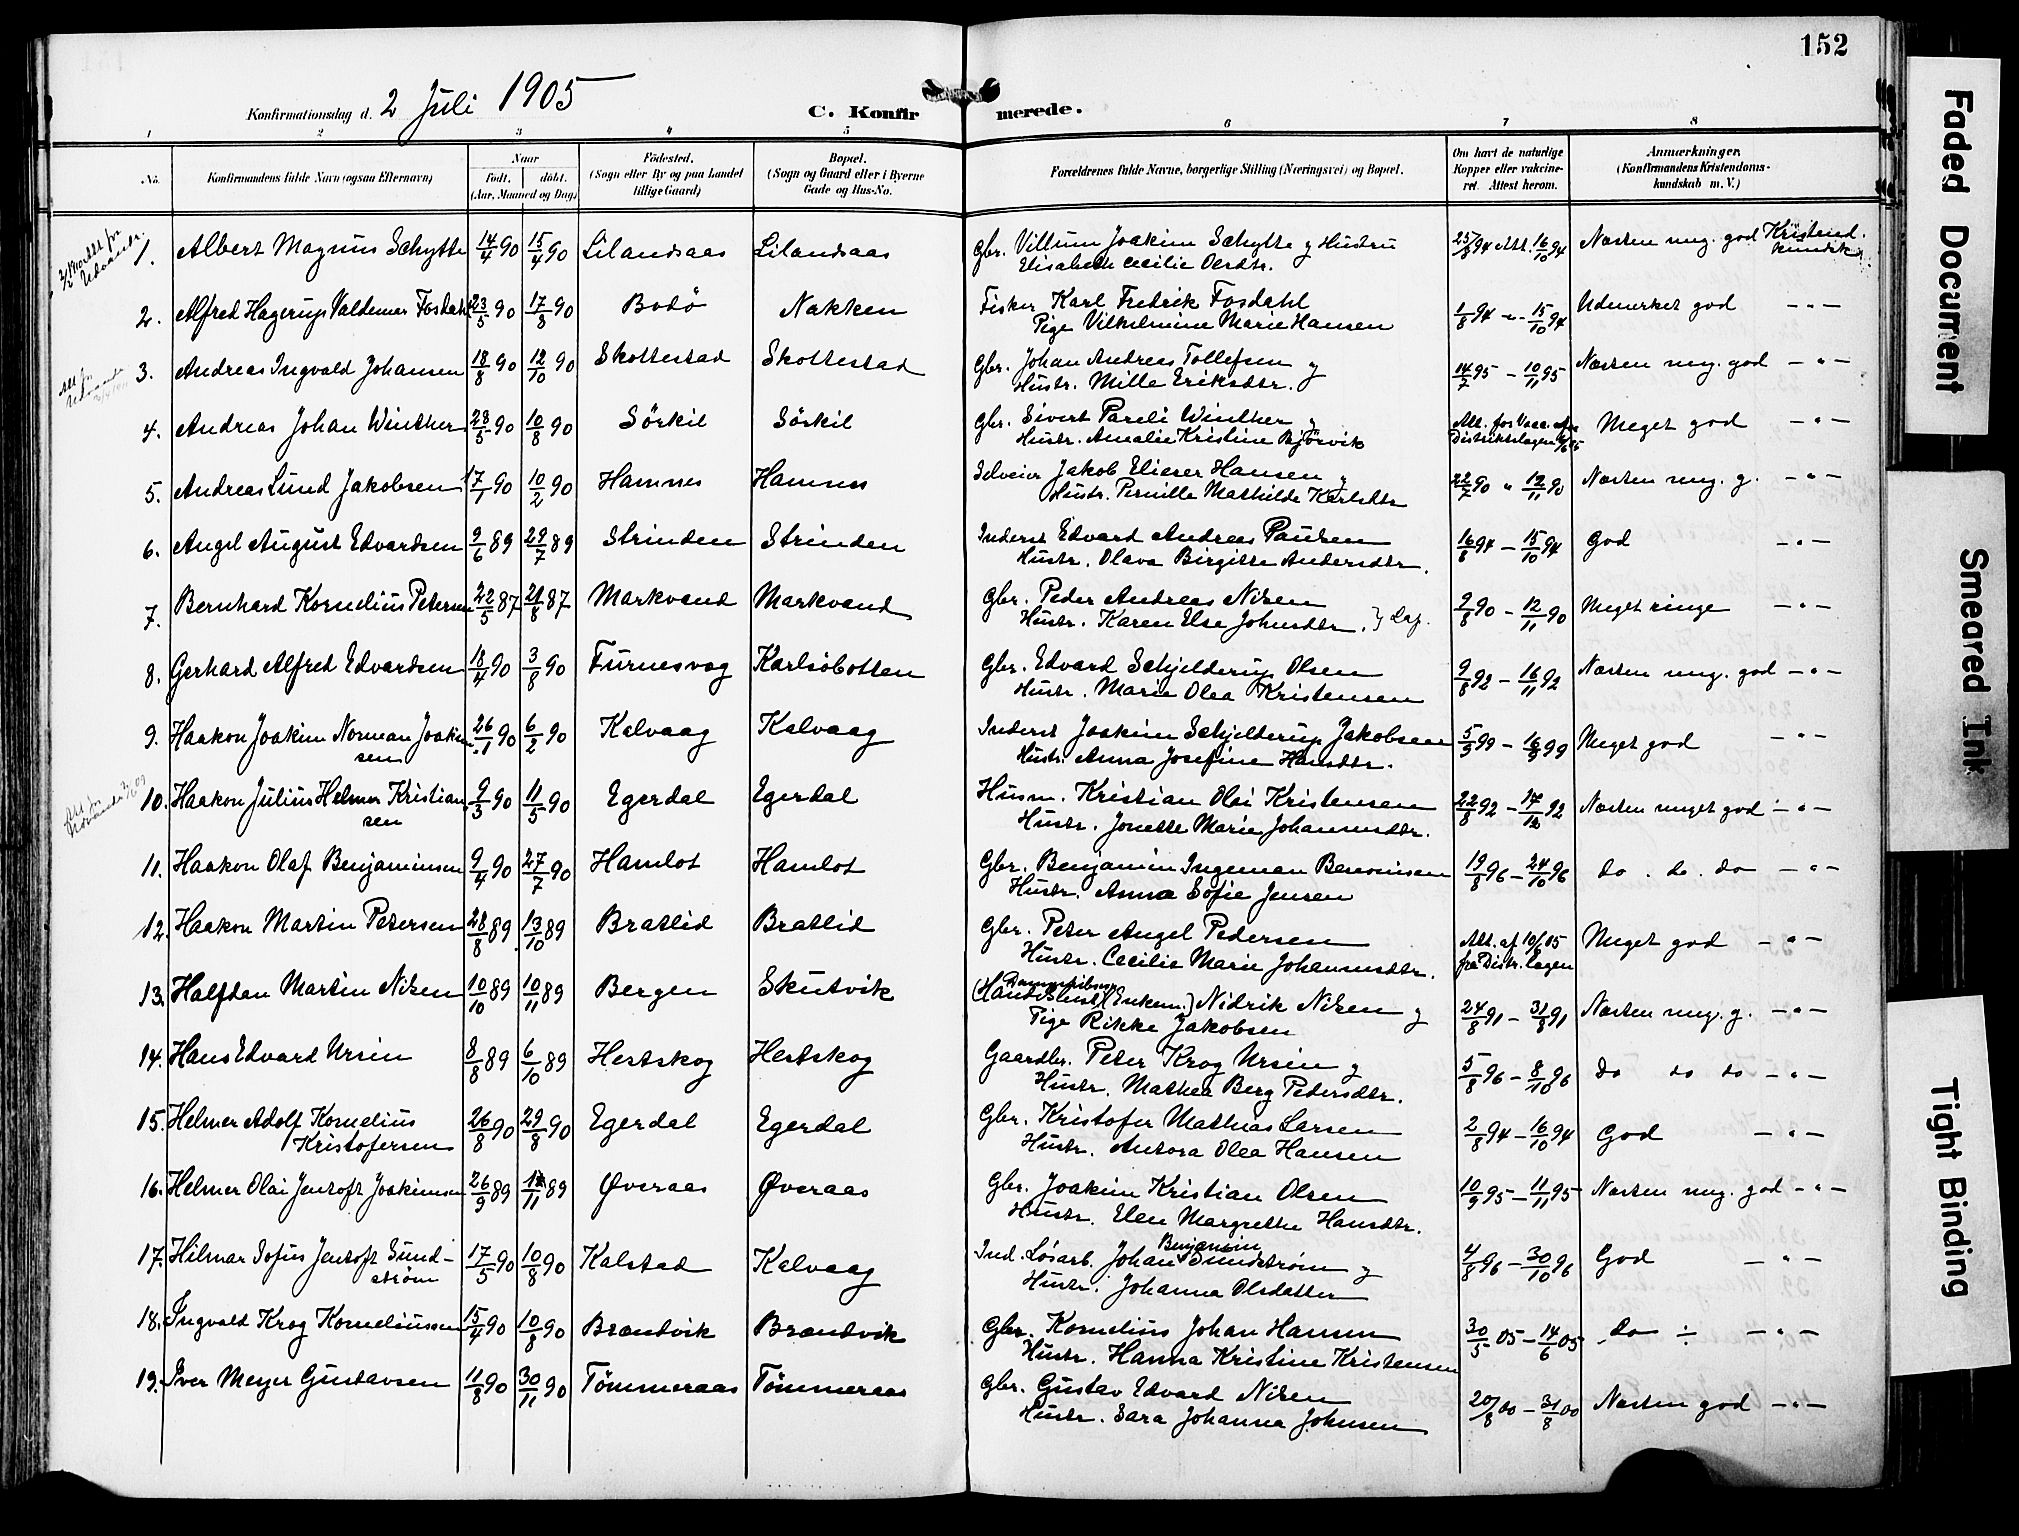 152
Konfirmationsdag d. 2 Juli 1905
C. Konfirmerede.
1 2 3 4 5 6 7 8
No. Konfirmandens fulde Navn (ogsaa Efternavn)
Naar født. døbt. (Aar, Maaned og Dag)
Fødested. (Sogn eller By og paa Landet tillige Gaard)
Bopæl. (Sogn og Gaard eller i Byerne Gade og Hus-No.
Forældrenes fulde Navne, borgerlige Stilling (Næringsvei) og Bopæl.
Om havt de naturlige Kopper eller vakcineret. Attest herom.
Anmærkninger. (Konfirmandens Kristendomskundskab m. V.)
1. Albert Magnus Schytte 14/4 90 15/4 90 Lilandsaas Lilandsaas Gbr. Villum Joakim Schytte og Hustru 25/8 94 Att. 16/10 94 Næsten meg. god Kristend.
Elisabeth Cecilie Olsdtr. kundsk.
2. Alfred Hagerup Valdemar Fosdahl 23/5 90 17/8 90 Bodø Nakken Fisker Karl Fredrik Fosdahl 1/8 94 - 15/10 94 Udmerket god - " -
Pige Vilhelmine Marie Hansen
3. Andreas Ingvald Johansen 18/8 90 12/10 90 Skottestad Skottestad Gbr. Johan Andreas Tollefsen og 14/7 95 - 10/11 95 Næsten meg. god - " -
Hustr. Mille Eriksdtr.
4. Andreas Johan Winther 28/5 90 10/8 90 Sörkil Sörkil Gbr. Sivert Pareli Winther og Att. for Vacc. af Meget god - " -
Hustr. Amalie Kristine Bjørvik Distriktslægen
5. Andreas Lund Jakobsen 17/1 90 10/2 90 Hamnes Hamnes Selveier Jakob Elieser Hansen og 22/7 90 " 12/11 90 Næsten meg. g. - " -
Hustr. Pernille Mathilde Karlsdtr
6. Angel August Edvardsen 9/6 89 29/7 89 Strinden Strinden Inderst Edvard Andreas Paulsen 16/8 94 - 15/10 94 God - " -
Hustr. Olava Birgitte Andersdtr.
7. Bernhard Kornelius Petersen 22/5 87 21/8 87 Markvand Markvand Gbr. Peder Andreas Nilsen 9/8 90 - 12/11 90 Meget ringe - " -
Hustr. Karen Else Johnsdtr. } Lap.
8. Gerhard Alfred Edvardsen 18/4 90 3/8 90 Furnesvag Karlsöbotten Gbr. Edvard Schjelderup Olsen 9/8 92 - 16/11 92 Næsten meg. god - " -
Hustr. Marie Olea Kristensen
9. Haakon Joakim Norman Joakim- 26/1 90 6/2 90 Kalvaag Kalvaag Inderst Joakim Schjelderup Jakobsen 5/9 99 - 16/9 99 Meget god - " -
sen Hustr. Anna Josefine Hansdtr.
10. Haakon Julius Helmer Kristian- 9/3 90 11/5 90 Egerdal Egerdal Husm. Kristian Olai Kristensen 22/8 92 - 17/12 92 Næsten meget god - " -
sen Hustr. Jonette Marie Johannesdtr.
11. Haakon Olaf Benjaminsen 9/4 90 27/7 90 Hamlot Hamlot Gbr. Benjamin Ingeman Benonisen 19/8 96 - 24/10 96 do. do. do - " -
Hustr. Anna Sofie Jensen
12. Haakon Martin Petersen 28/8 89 13/10 89 Bratlid Bratlid Gbr. Peter Angel Pedersen Att. af 10/6 05 Meget god - " -
Hustr. Cecilie Marie Johannesdtr. fra Distr. lægen
13. Halfdan Martin Nilsen 10/10 89 10/11 89 Bergen Skutvik (Enkem.) Nidrik Nilsen og 24/8 91 - 31/8 91 Næsten meg. g. - " -
Pige Rikke Jakobsen
14. Hans Edvard Ursin 8/8 89 6/10 89 Hestskog Hestskog Gaardbr. Peter Krog Ursin og 5/8 96 - 8/10 96 do do do - " -
Hustr. Mathea Berg Pedersdtr.
15. Helmer Adolf Kornelius 26/8 90 29/8 90 Egerdal Egerdal Gbr. Kristofer Mathias Larsen 2/8 94 - 16/10 94 God - " -
Kristofersen Hustr. Antora Olea Hansen
16. Helmer Olai Jentoft Joakimsen 26/9 89 11/11 89 Øveraas Øveraas Gbr. Joakim Kristian Olsen 10/9 95 - 11/11 95 Næsten meg. god - " -
Hustr. Elen Margrethe Hansdtr.
17. Hilmar Sofus Jentoft Sund- 17/5 90 10/8 90 Kalstad Kalvaag Ind. Løsarb. Johan Benjamin Sundstrøm og 4/8 96 - 30/10 96 God - " -
strøm Hustr. Johanna Olsdatter
18. Ingvald Krog Korneliussen 15/4 90 10/8 90 Brændvik Brændvik Gbr. Kornelius Johan Hansen 30/5 05 - 14/6 05 do ÷ - " -
Hustr. Hanna Kristine Kristensen
19. Iver Meyer Gustavsen 11/8 90 30/11 90 Tømmeraas Tømmeraas Gbr. Gustav Edvard Nilsen 20/8 00 - 31/8 00 Næsten god - " -
Hustr. Sara Johanna Johnsen
Faded Document
Smeared Ink
Tight Binding